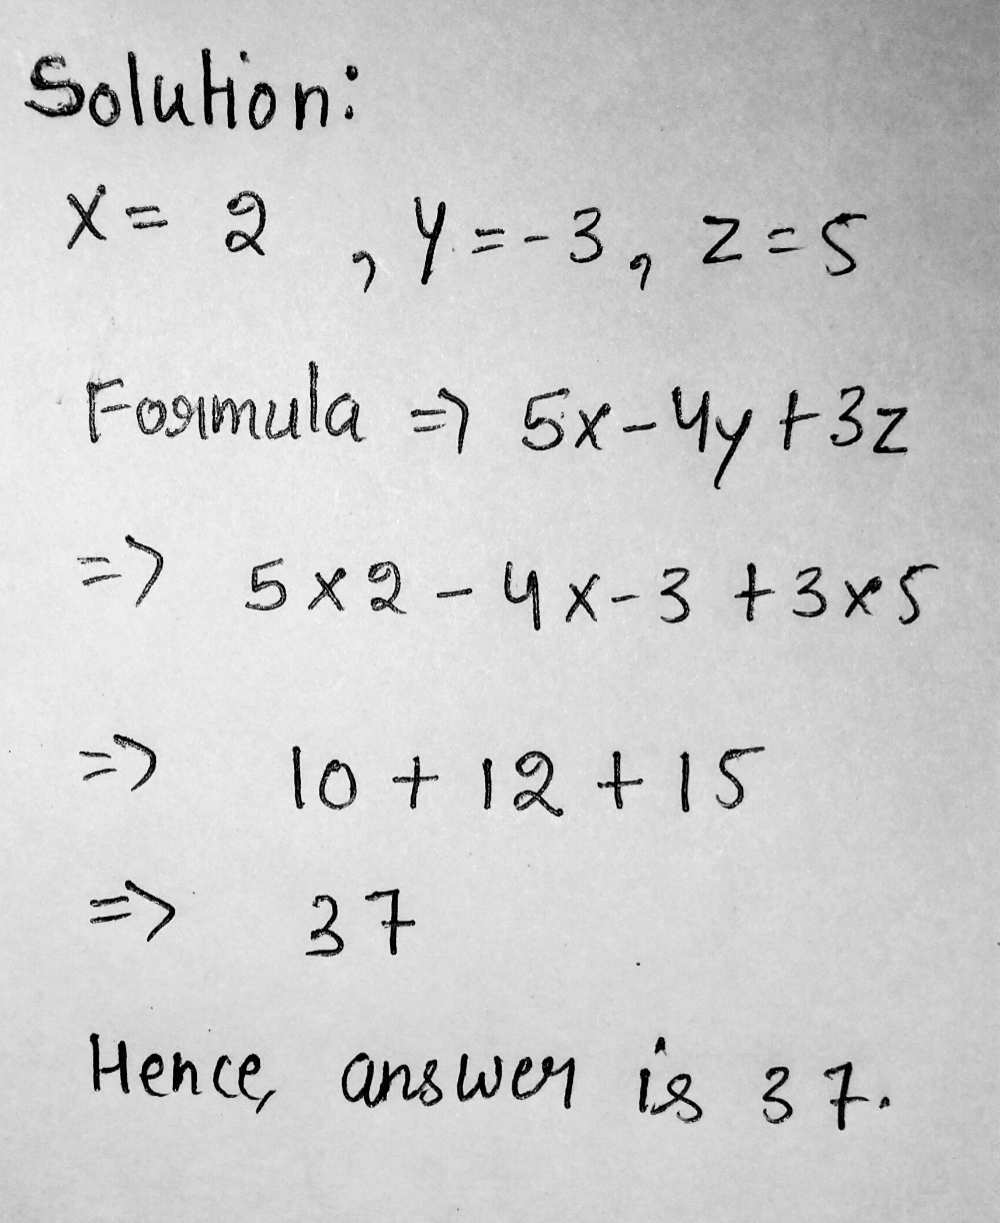 Solution:
x = 2 , y = -3 , z = 5
Formula => 5x - 4y + 3z
=> 5 x 2 - 4 x -3 + 3 x 5
=> 10 + 12 + 15
=> 37
Hence, answer is 37.